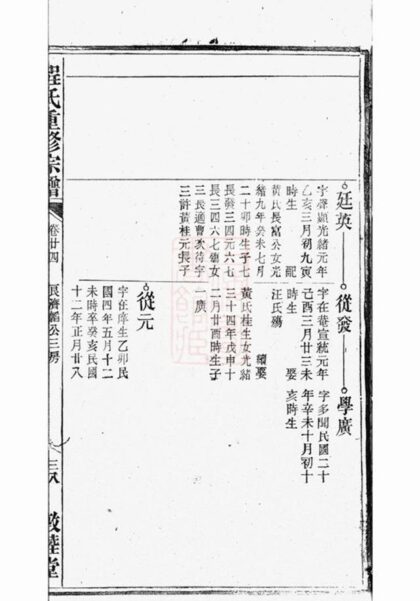 廷英
字聲顯光緒元年
乙亥三月初九寅
時生 配
黃氏長富公女光
緒九年癸未七月
二十卯時生子七
長發三四元六七
長三四六七
三長適曹次待字
三許黃桂元長子
從發
字在菴宣統元年
己酉三月廿三未
時生 娶
汪氏殤 續娶
黃氏桂生女光緒
三十四年戊申十
二月廿酉時生子
一廣
從元
字在庠生乙卯民
國四年五月十二
未時卒癸亥民國
十二年正月廿八
學廣
字多聞民國二十
年辛未十月初十
亥時生
程氏重修宗譜
卷廿四
良濟
公三房
三八
敦睦堂